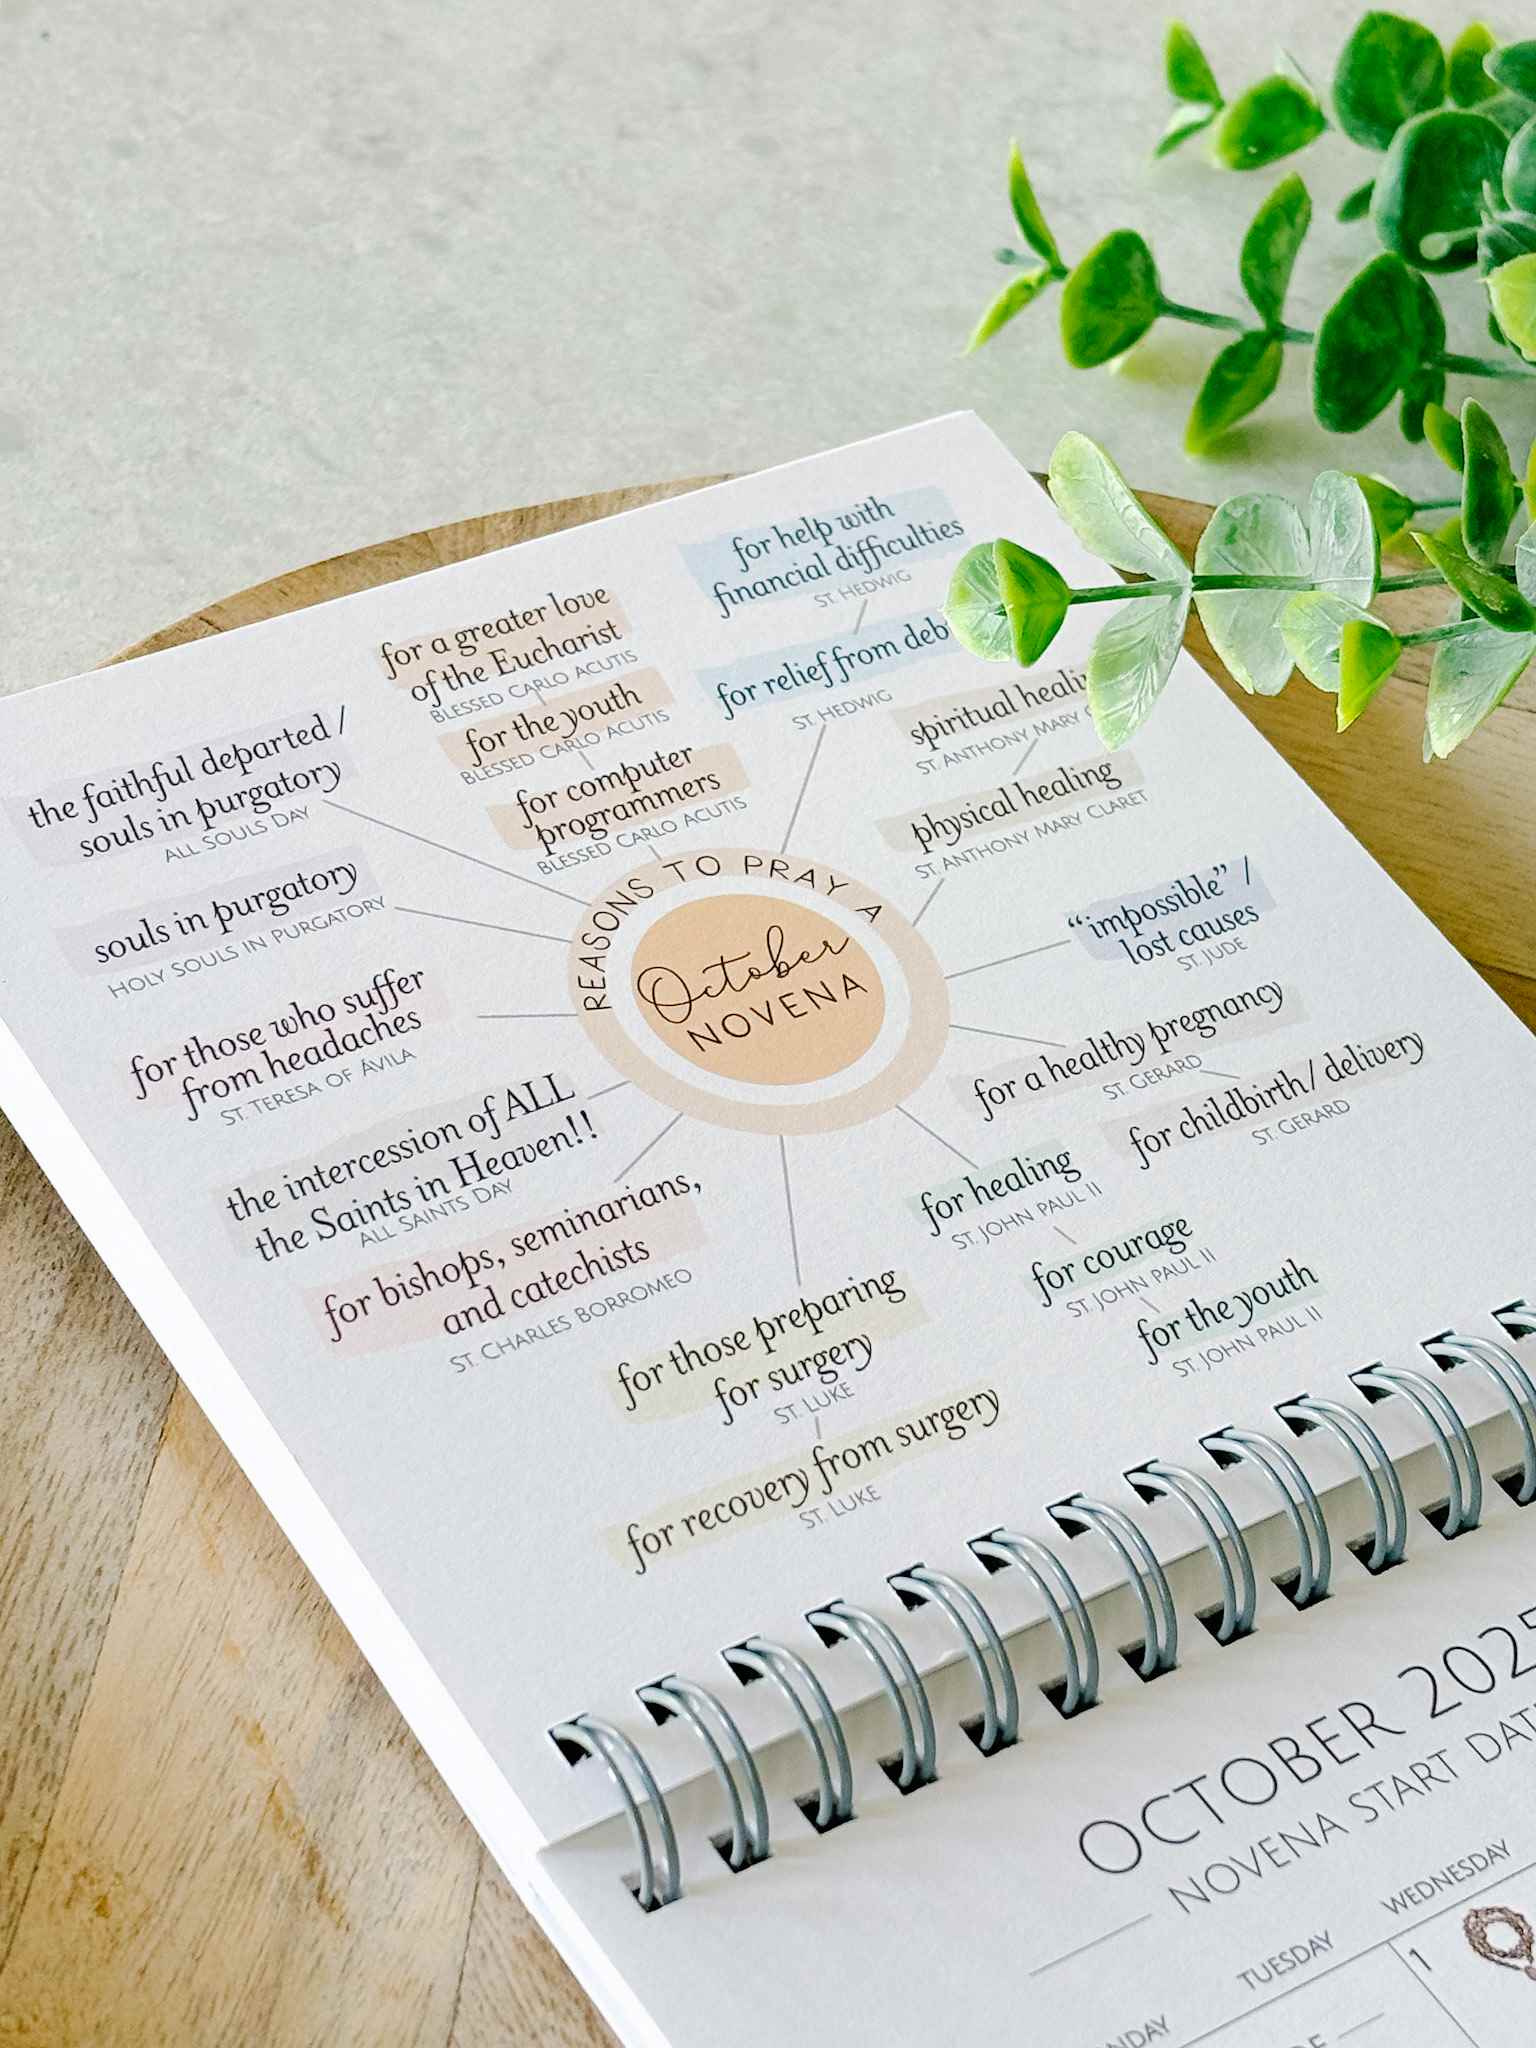 for help with
financial difficulties
ST. HEDWIG
for relief from
ST. HEDWIG
for a greater love
of the Eucharist
BLESSED CARLO ACUTIS
for the youth
BLESSED CARLO ACUTIS
for computer
programmers
BLESSED CARLO ACUTIS
the faithful departed /
souls in purgatory
ALL SOULS DAY
souls in purgatory
HOLY SOULS IN PURGATORY
for those who suffer
from headaches
ST. TERESA OF ÁVILA
the intercession of ALL
the Saints in Heaven!!
ALL SAINTS DAY
for bishops, seminarians,
and catechists
ST. CHARLES BORROMEO
REASONS TO PRAY A
October
NOVENA
spiritual
ST. ANTHONY MARY
physical healing
ST. ANTHONY MARY CLARET
“impossible” /
lost causes
ST. JUDE
for a healthy pregnancy
ST. GERARD
for childbirth / delivery
ST. GERARD
for healing
ST. JOHN PAUL II
for courage
ST. JOHN PAUL II
for the youth
ST. JOHN PAUL II
for those preparing
for surgery
ST. LUKE
for recovery from surgery
ST. LUKE
OCTOBER 2025
NOVENA START
TUESDAY
WEDNESDAY
1